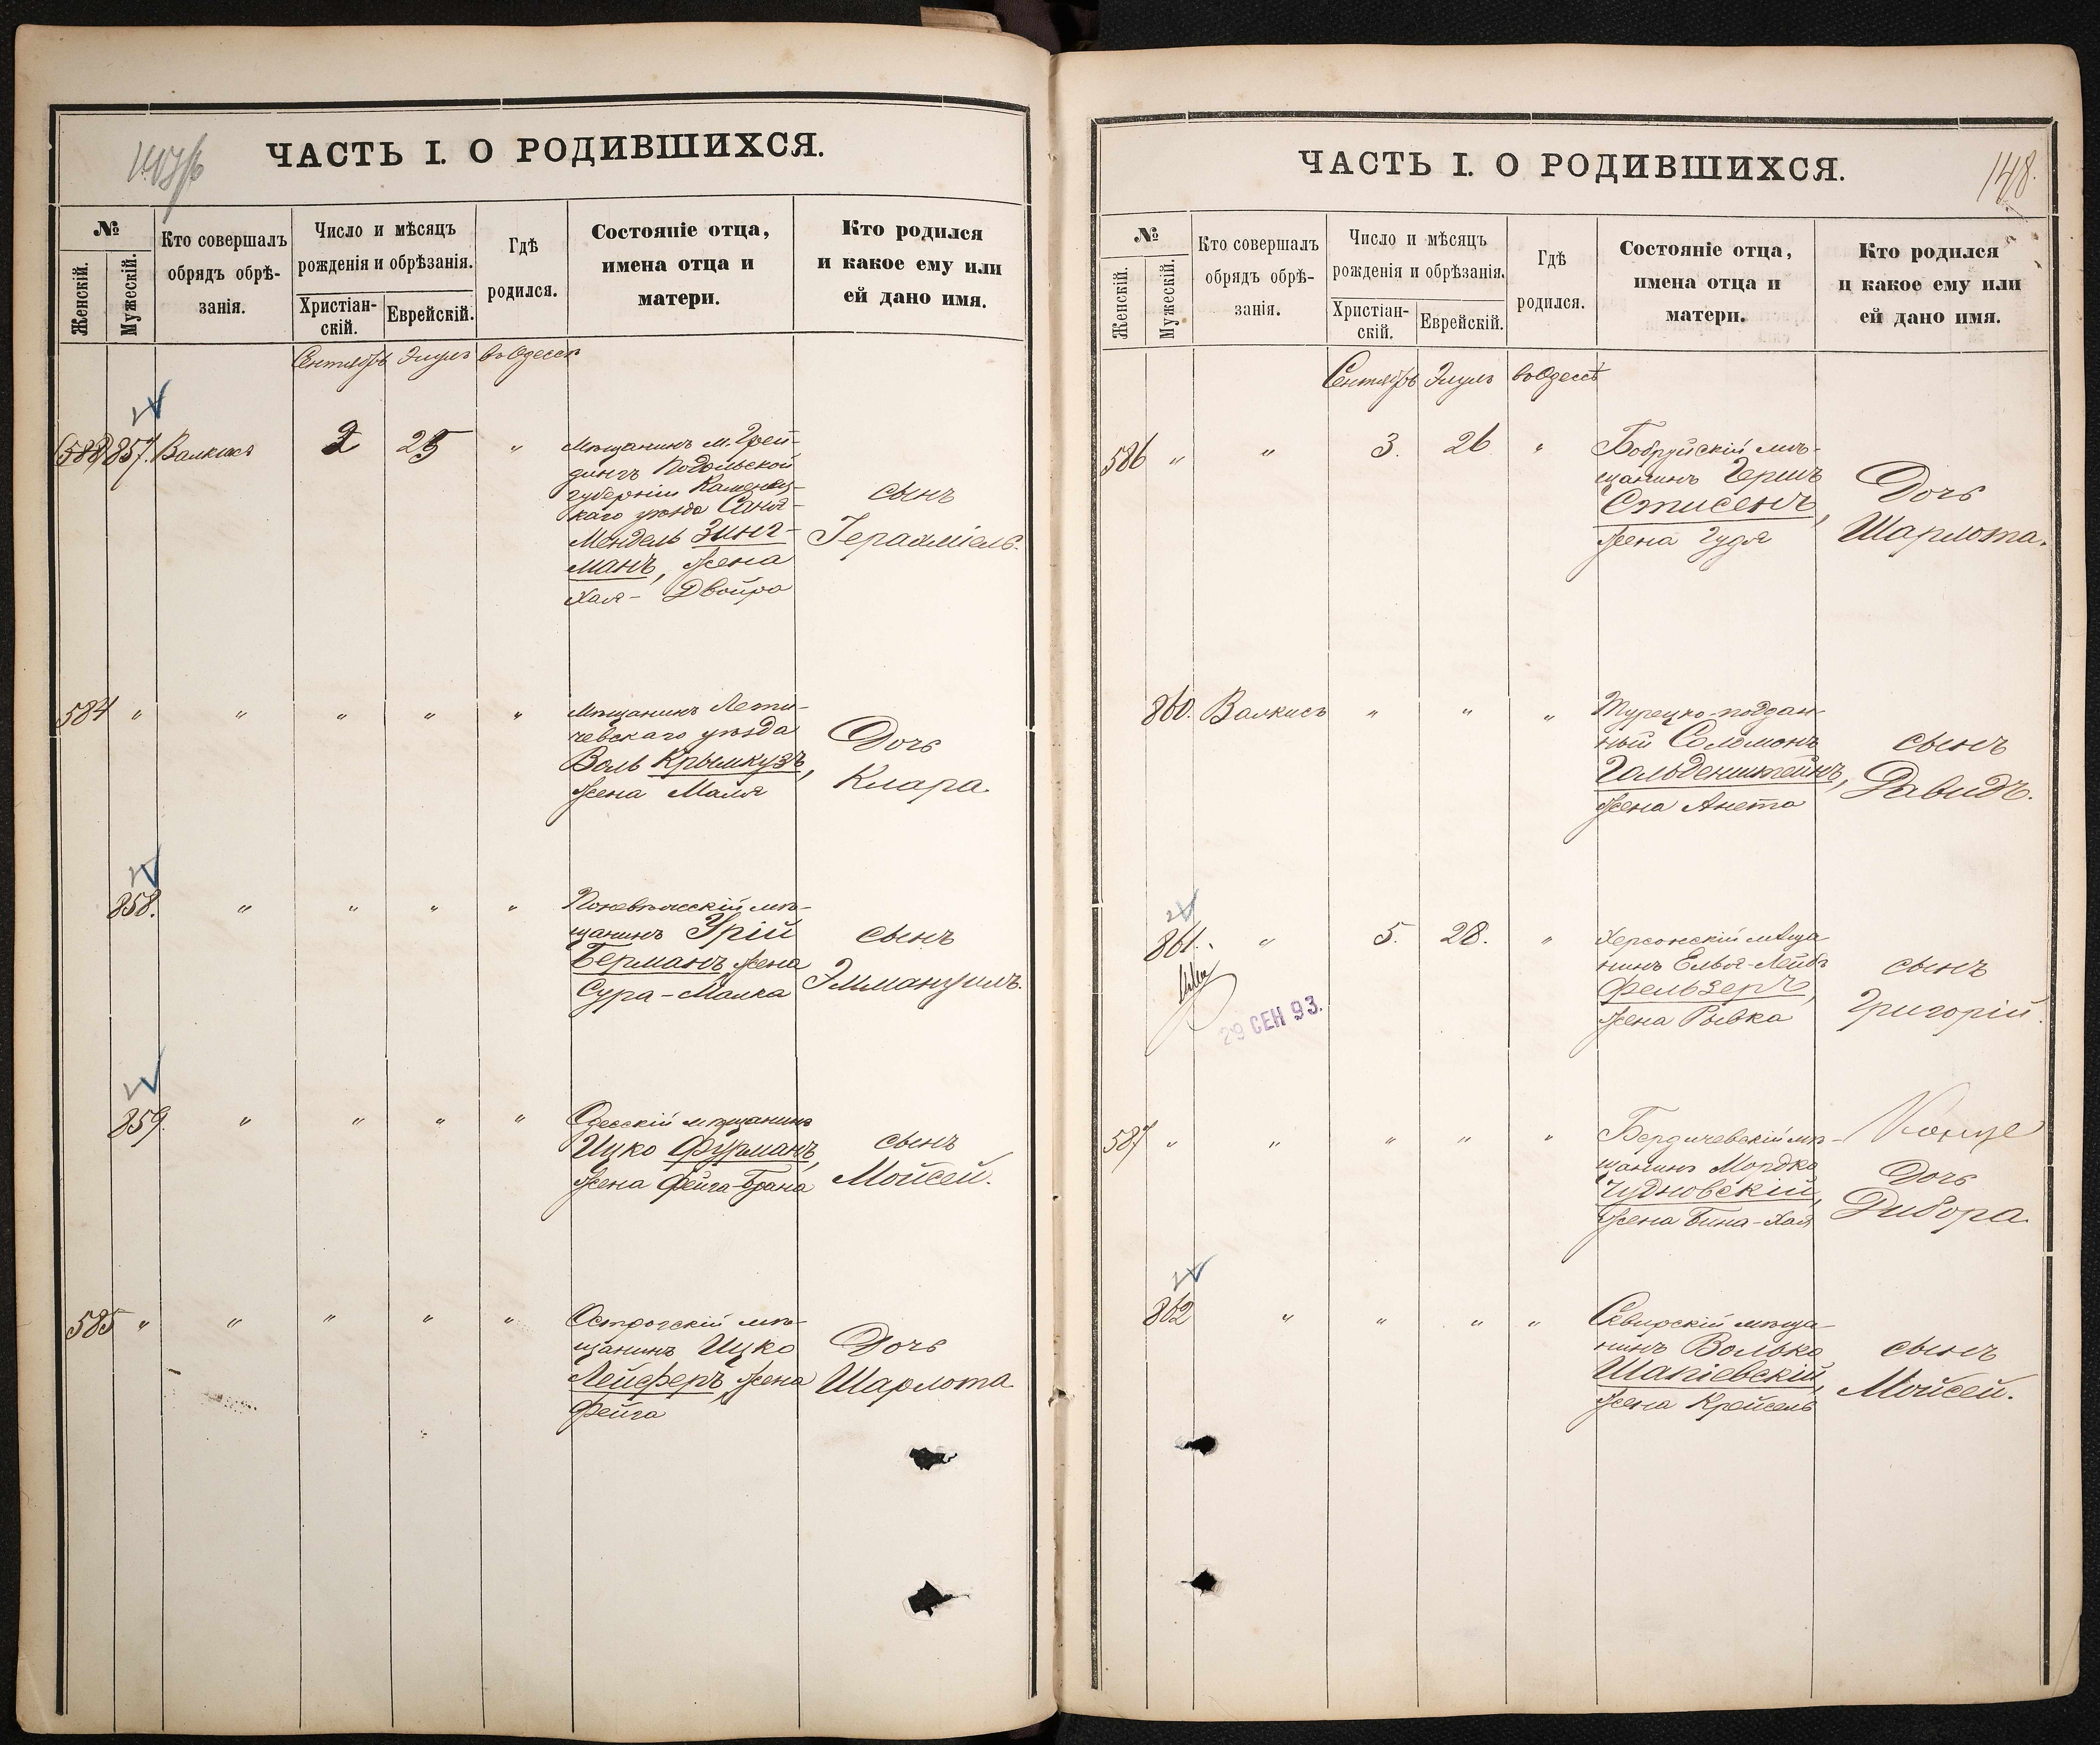 ЧАСТЬ I. О РОДИВШИХСЯ.
№
Женскій.
Мужескій.
Кто совершалъ
обрядъ обрѣ-
занія.
Число и мѣсяцъ
рожденія и обрѣзанія.
Христіан-
скій.
Еврейскій.
Гдѣ
родился.
Состояніе отца,
имена отца и
матери.
Кто родился
и какое ему или
ей дано имя.
Сентябрь Элулъ въ Одессѣ
857. Валкисъ 2 25 "
Мѣщанинъ м.
Подольской
губерніи Каменец-
каго уѣзда
Мендель Зинг-
манъ, жена
Хая-Двойра
сынъ
Іерахміель.
584 " " " " "
Мѣщанинъ Лети-
чевскаго уѣзда
Воль Крымкузъ,
жена Маля
Дочь
Клара
858. " " " "
мѣ-
щанинъ Урій
Берманъ, жена
Сура-Малка
сынъ
Эммануилъ.
859. " " " "
Одесскій мѣщанинъ
Ицко Фурманъ,
жена Фейга-Брана
сынъ
Мойсей.
585 " " " " "
Острогскій мѣ-
щанинъ Ицко
Лейферъ, жена
Фейга
Дочь
Шарлота
ЧАСТЬ I. О РОДИВШИХСЯ.
148.
№
Женскій.
Мужескій.
Кто совершалъ
обрядъ обрѣ-
занія.
Число и мѣсяцъ
рожденія и обрѣзанія.
Христіан-
скій.
Еврейскій.
Гдѣ
родился.
Состояніе отца,
имена отца и
матери.
Кто родился
и какое ему или
ей дано имя.
Сентябрь Элулъ въ Одессѣ
586 " " 3. 26 "
Бобруйскій мѣ-
щанинъ Гершъ
Стисенъ,
жена Гудя
Дочь
Шарлота.
860. Валкисъ " " "
Турецко-поддан-
ный Соломонъ
Гольденштейнъ,
жена Анета
сынъ
Давидъ.
861. " 5. 28. "
29 СЕН 93.
Херсонскій мѣща
нинъ Елья-Лейбъ
Фельзеръ,
жена Рывка
сынъ
Григорій.
587 " " " " "
Бердичевскій мѣ-
щанинъ Мордко
Чудновскій,
жена Бина-Хая
Дочь
Дибора
862 " " " "
Сквирскій мѣща-
нинъ Волько
Шапіевскій,
жена Крейсель
сынъ
Мойсей.